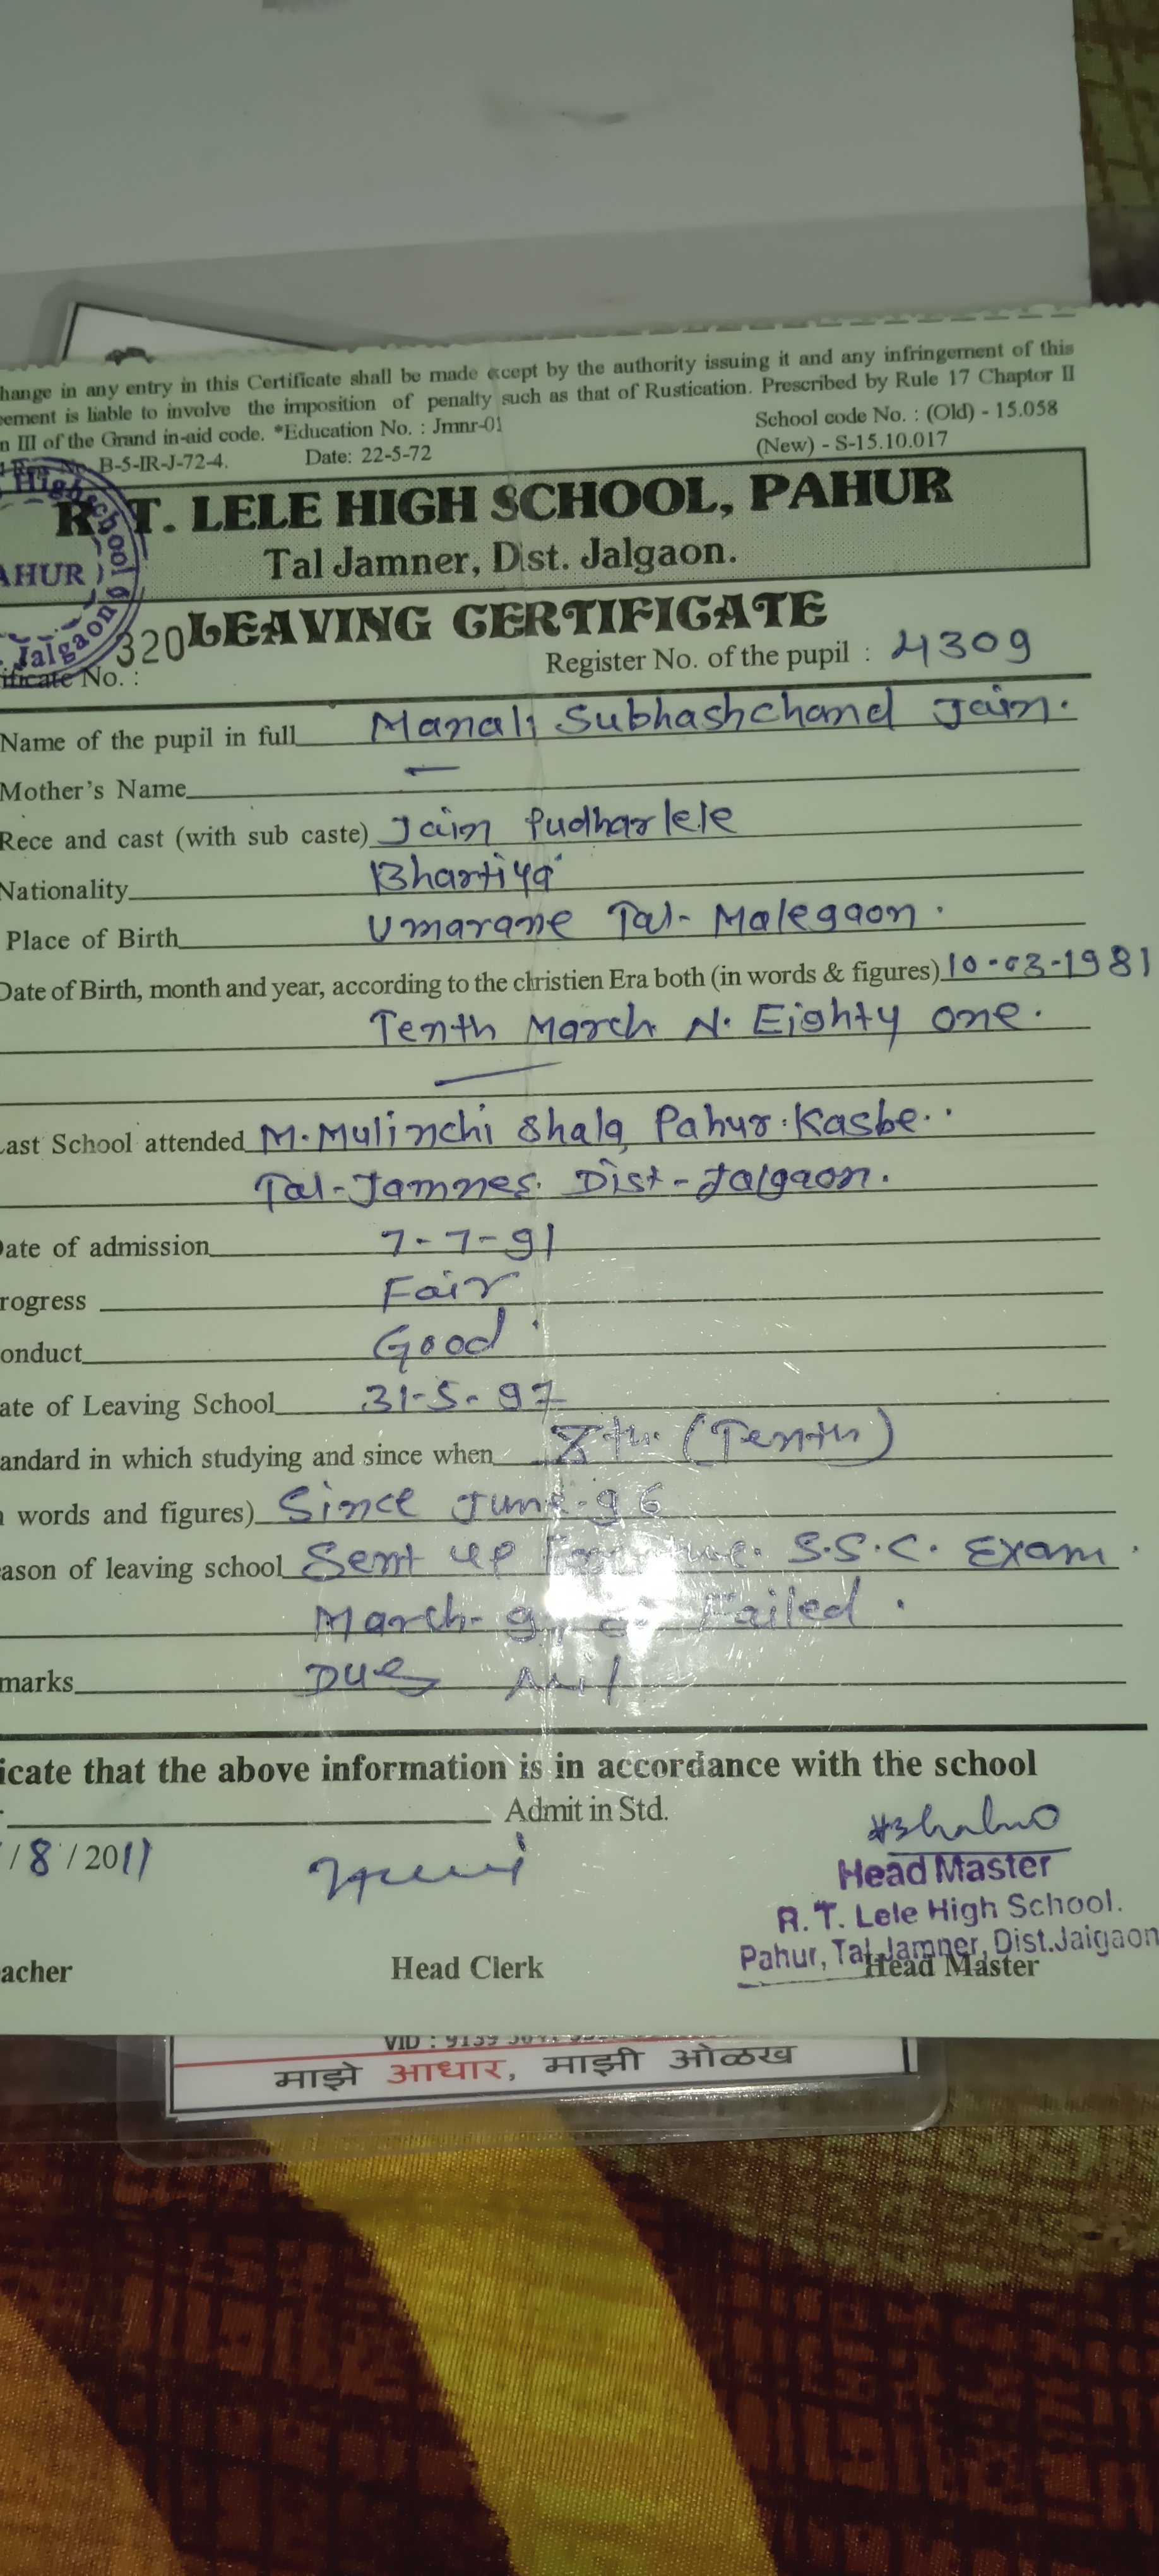 hange in any entry in this Certificate shall be made except by the authority issuing it and any infringement of this
ement is liable to involve the imposition of penalty such as that of Rustication. Prescribed by Rule 17 Chaptor II
n III of the Grand in-aid code. *Education No. : Jmnr-01 School code No. : (Old) - 15.058
B-5-IR-J-72-4. Date: 22-5-72 (New) - S-15.10.017
R. T. LELE HIGH SCHOOL, PAHUR
Tal Jamner, Dist. Jalgaon.
Highschool
AHUR
Jalgaon
LEAVING CERTIFICATE
ificate No. : 320 Register No. of the pupil : 4309
Name of the pupil in full Manali Subhashchand Jain.
Mother's Name —
Rece and cast (with sub caste) Jain Pudharlele
Nationality Bhartiya
Place of Birth Umarane Tal- Malegaon.
Date of Birth, month and year, according to the christien Era both (in words & figures) 10-03-1981
Tenth March N. Eighty one.
Last School attended M. Mulinchi Shala, Pahur. Kasbe..
Tal-Jamner. Dist-Jalgaon.
Date of admission 7-7-91
rogress Fair
onduct Good
ate of Leaving School 31-5-97
andard in which studying and since when Xth. (Tenth)
n words and figures) Since June-96
ason of leaving school Sent up S.S.C. Exam.
March- Failed.
marks Dues Nil
icate that the above information is in accordance with the school
Admit in Std.
/8/2011
Head Master
R. T. Lele High School.
Pahur, Tal. Jamner, Dist.Jalgaon
acher Head Clerk Head Master
VID : 9139
माझे आधार, माझी ओळख